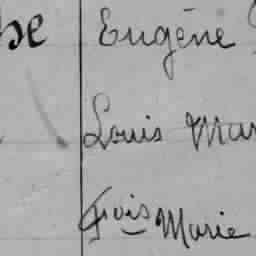 he Eugène
Louis Mar
Frois Marie